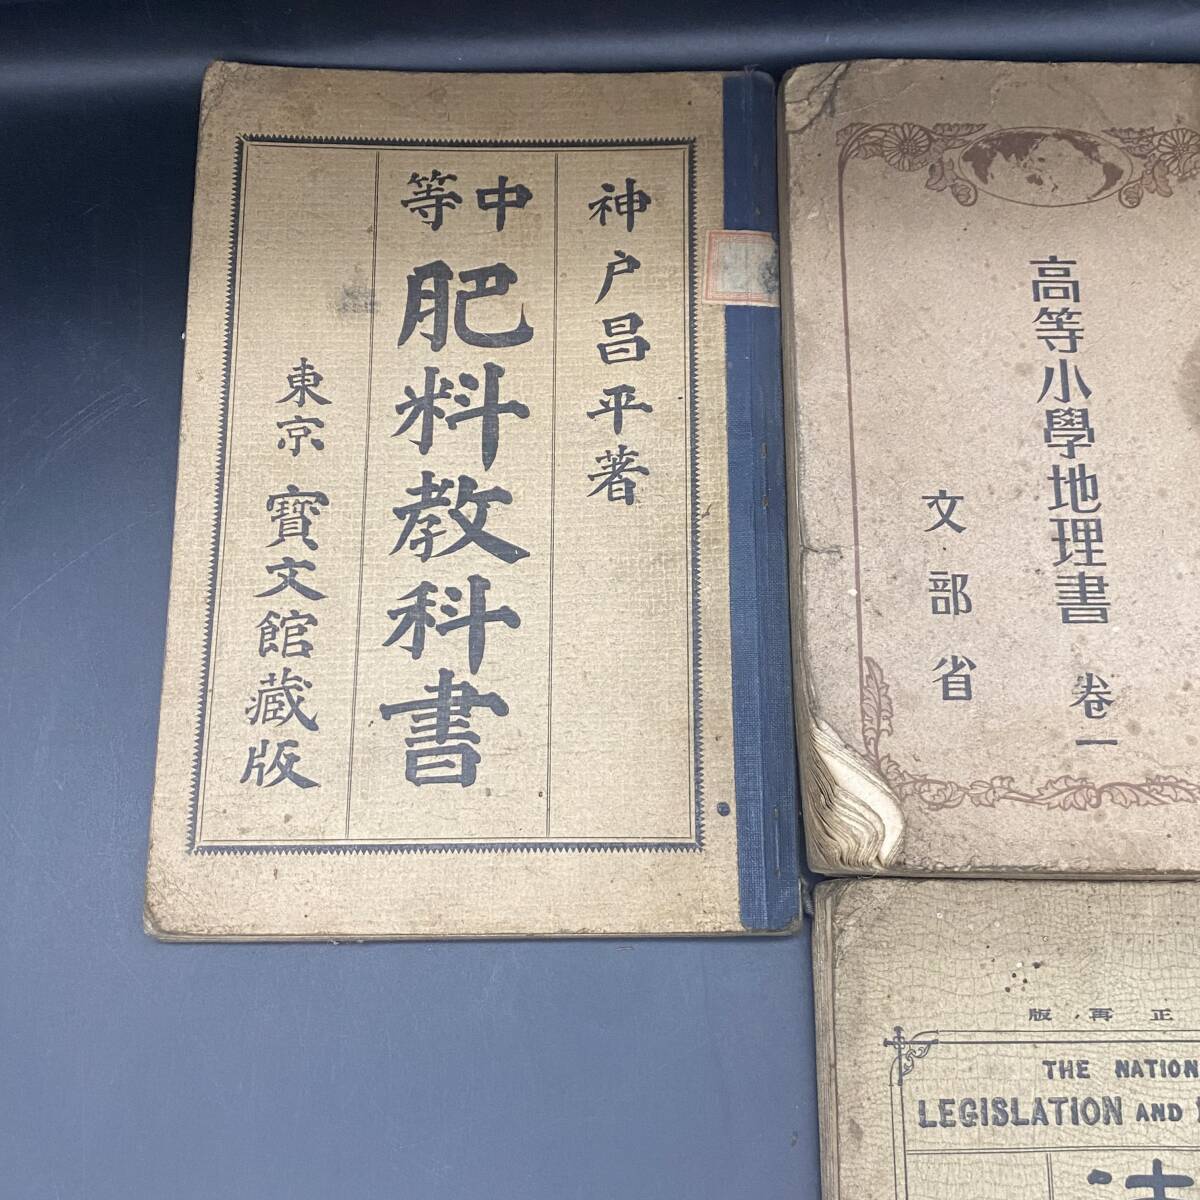 神戸昌平著
中等
肥料教科書
東京 寶文館蔵版
高等小學地理書 卷一
文部省
正再版
THE NATION
LEGISLATION AND